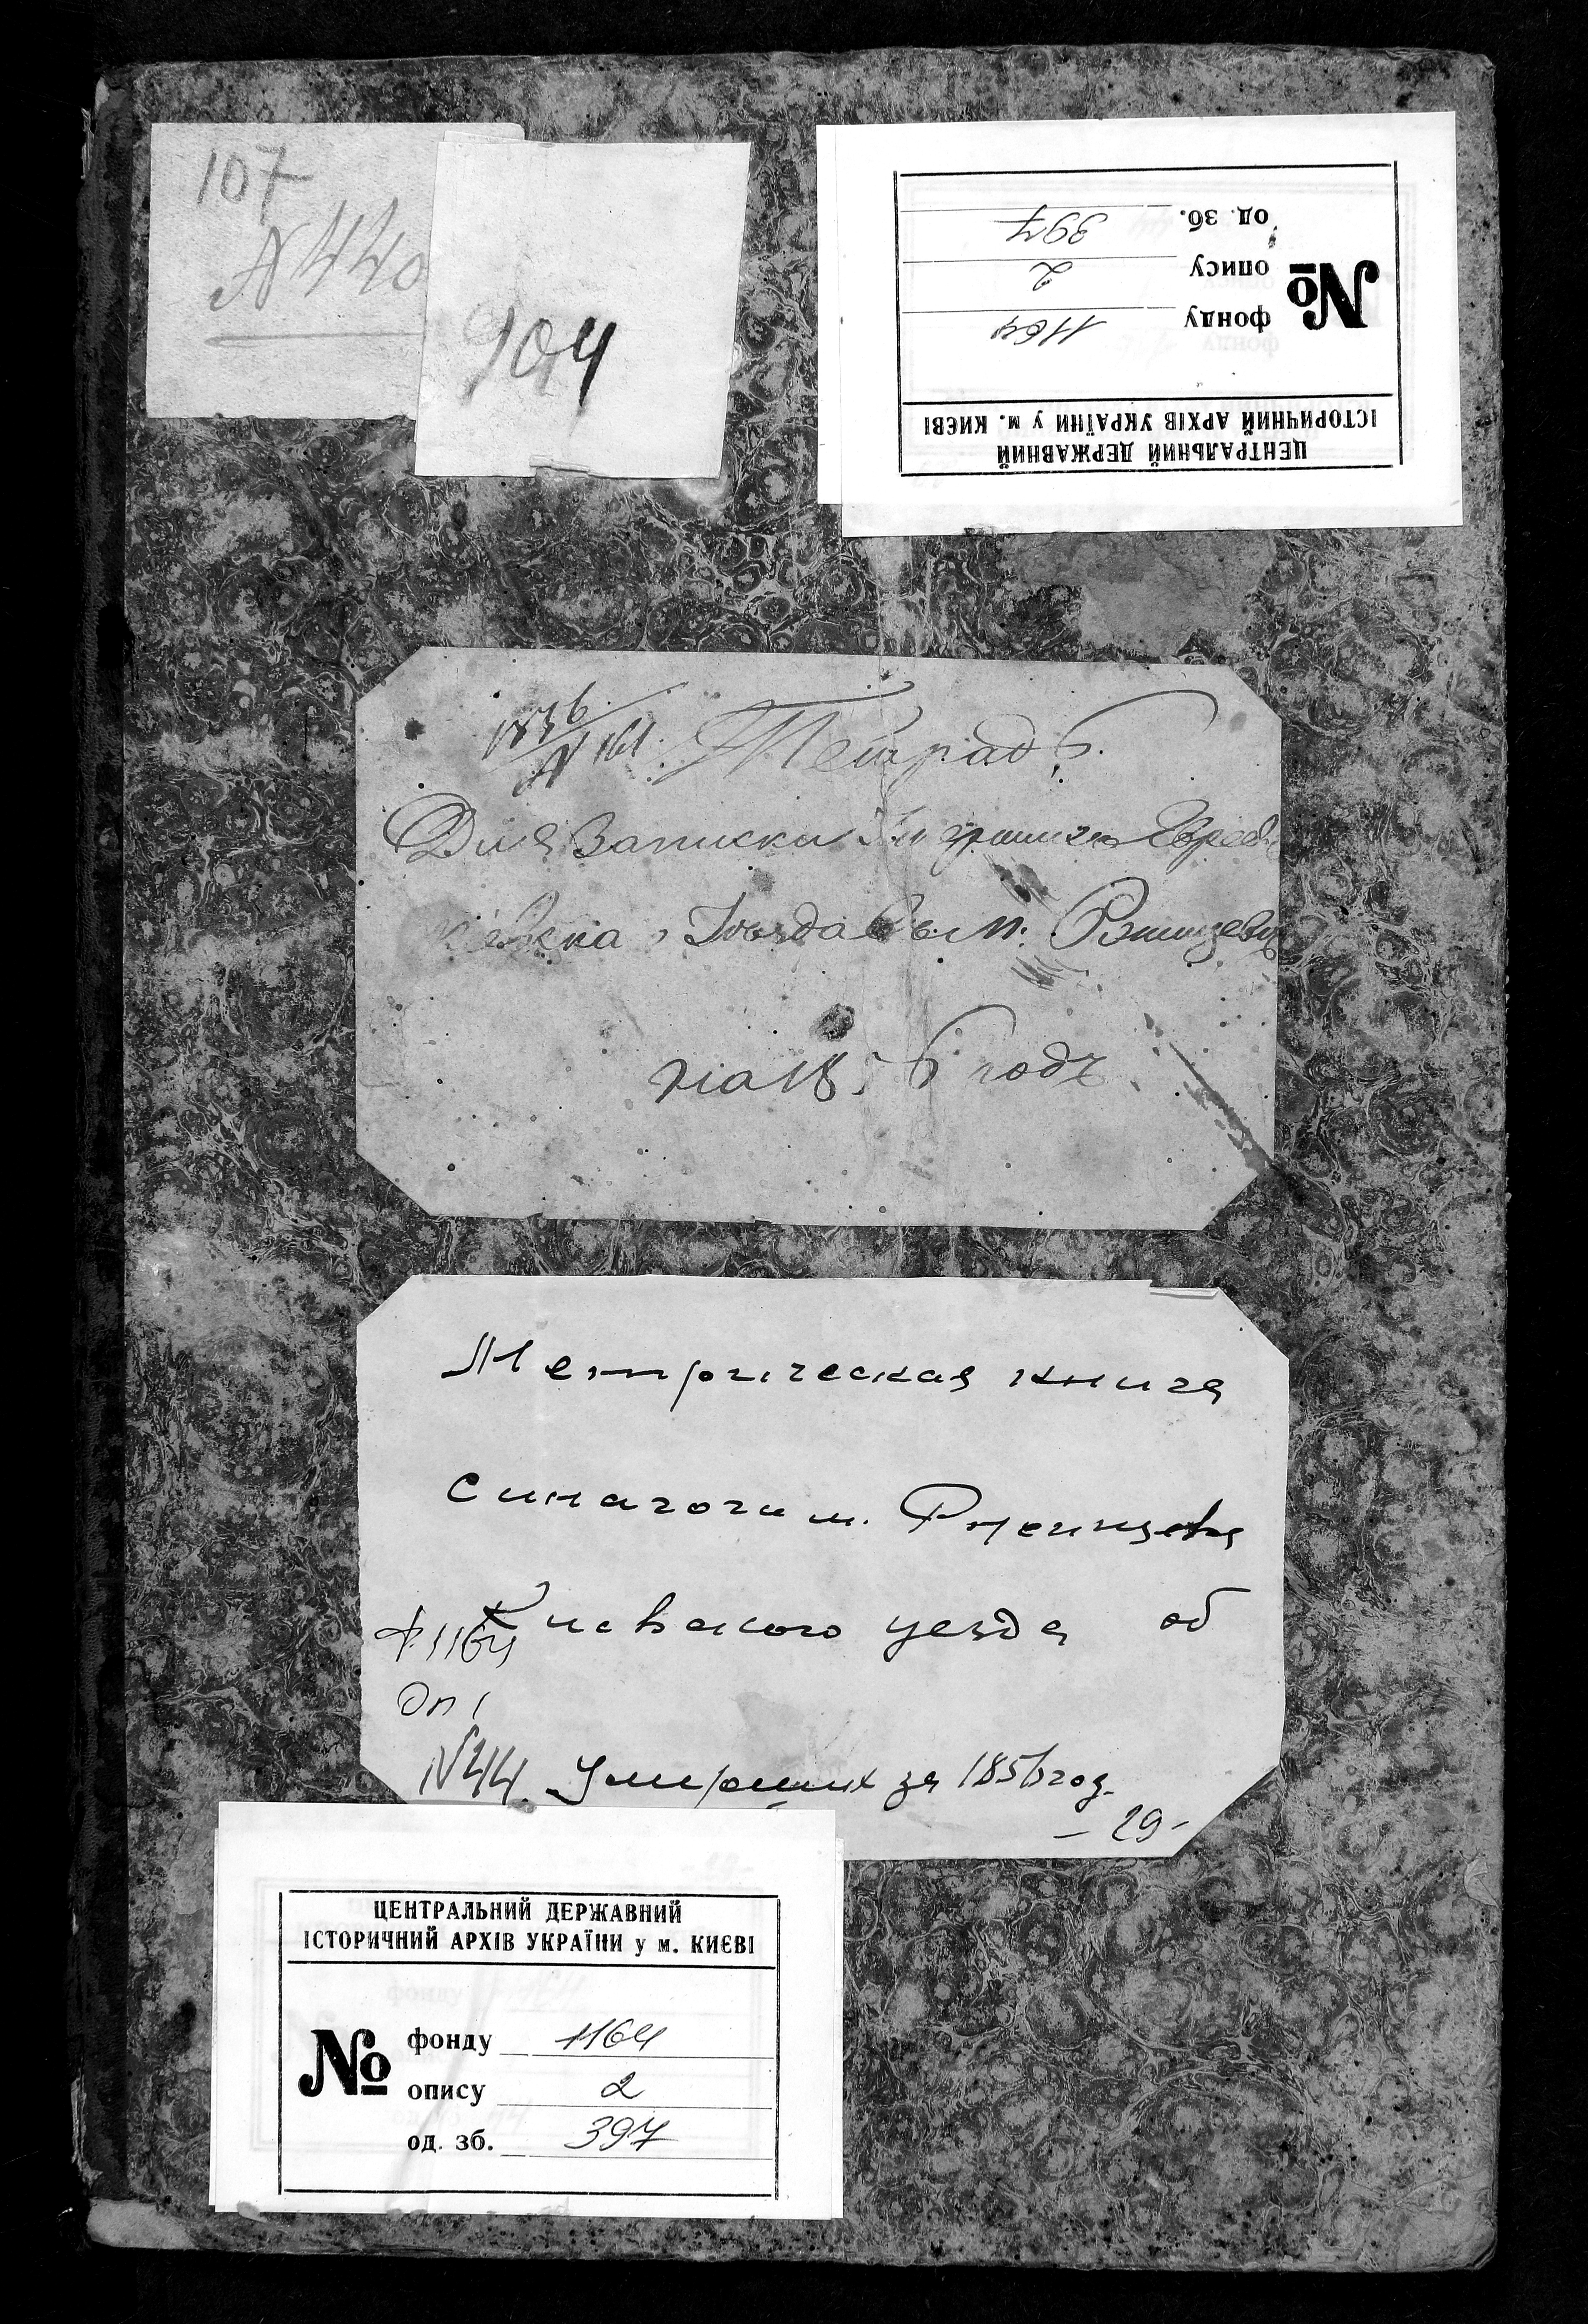 107
N 440
904
ЦЕНТРАЛЬНИЙ ДЕРЖАВНИЙ
ІСТОРИЧНИЙ АРХІВ УКРАЇНИ у м. КИЄВІ
№
фонду 1164
опису 2
од. зб. 397
N 161. Тетрадь
Для Записки Евреев
уезда в м.
на 18 6 годъ
Метрическая книга
синагоги м. Ржищева
Киевского уезда об
умерших за 1856 год.
Ф. 1164
Оп 1
N 44.
- 29 -
ЦЕНТРАЛЬНИЙ ДЕРЖАВНИЙ
ІСТОРИЧНИЙ АРХІВ УКРАЇНИ у м. КИЄВІ
№
фонду 1164
опису 2
од. зб. 397